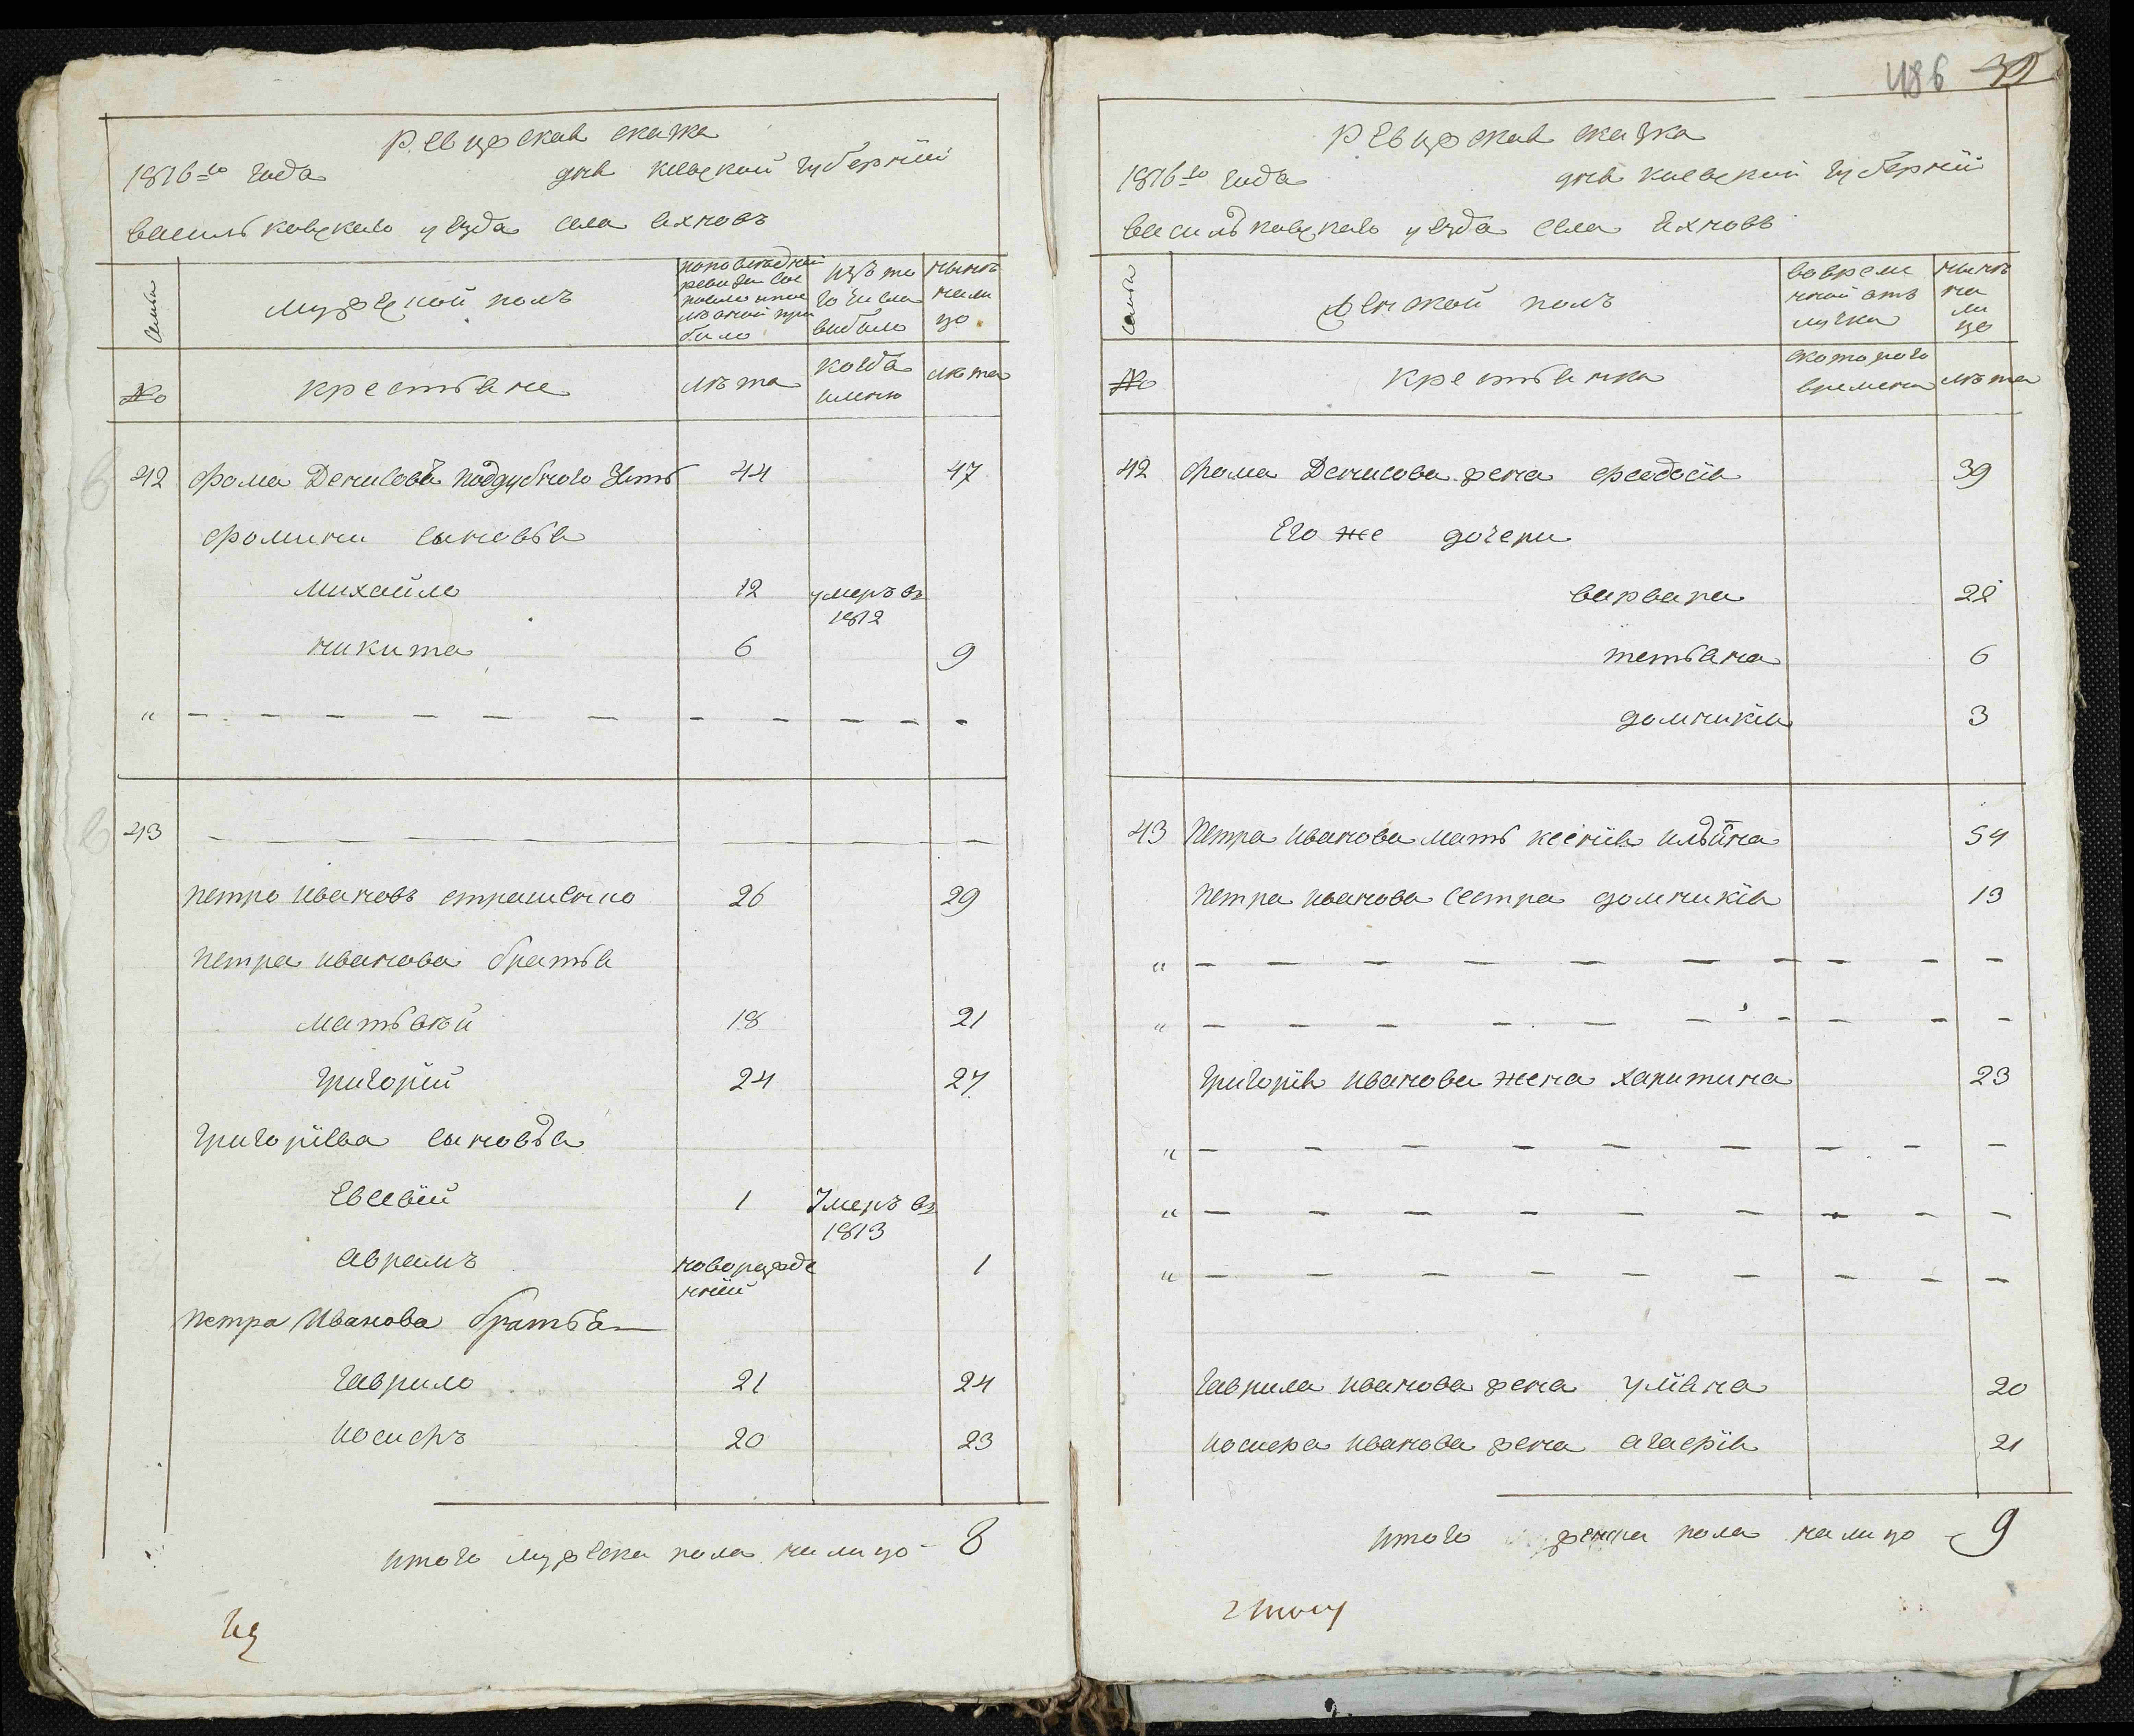 Ревижская сказка
1816го года для киевской губернии
васильковского уезда села яхновъ
Семьи
мужеской полъ
попоследней ревизии состояло и после оной прибыло
изъ того числа выбыло
нынѣ налицо
№
крестьяне
лѣта
когда имянно
лѣта
42 Фома Денисовъ поддубного зять 44 47
Фомини сыновья
михайло 12 умеръ въ 1812
никита 6 9
"
43
петро ивановъ страшенко 26 29
петра иванова братья
матьвѣй 18 21
григорій 24 27
григоріева сыновья
Евсевій 1 Умеръ въ 1813
аврамъ новорожденій 1
петра Иванова братья
гаврило 21 24
иосифъ 20 23
итого мужеска пола налицо 8
486 39
Ревижская сказка
1816го года для киевской губерніи
васильковского уезда села яхновъ
Семьи
Женской полъ
вовременной отлучки
нынѣ налицо
№
крестьянка
скоторого времени
лѣта
42 Фома Денисова жена феодосія 39
Его же дочери
варвара 22
тетьяна 6
домникія 3
43 петра иванова мать ксенія ильина 54
петра иванова сестра домникія 13
"
"
григорія иванова жена харитина 23
"
"
"
гаврила иванова жена уліяна 20
иосифа иванова жена агафія 21
итого женска пола налицо 9